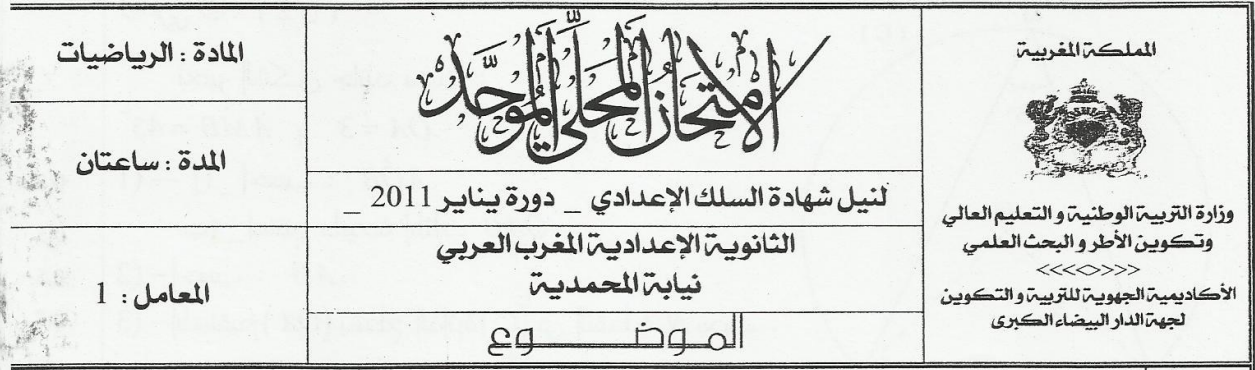 المملكة المغربية
وزارة التربية الوطنية و التعليم العالي
وتكوين الأطر و البحث العلمي
<<<<>>>>
الأكاديمية الجهوية للتربية و التكوين
لجهة الدار البيضاء الكبرى
الامتحان المحلي الموحد
لنيل شهادة السلك الإعدادي _ دورة يناير 2011 _
الثانوية الإعدادية المغرب العربي
نيابة المحمدية
الموضوع
المادة : الرياضيات
المدة : ساعتان
المعامل : 1